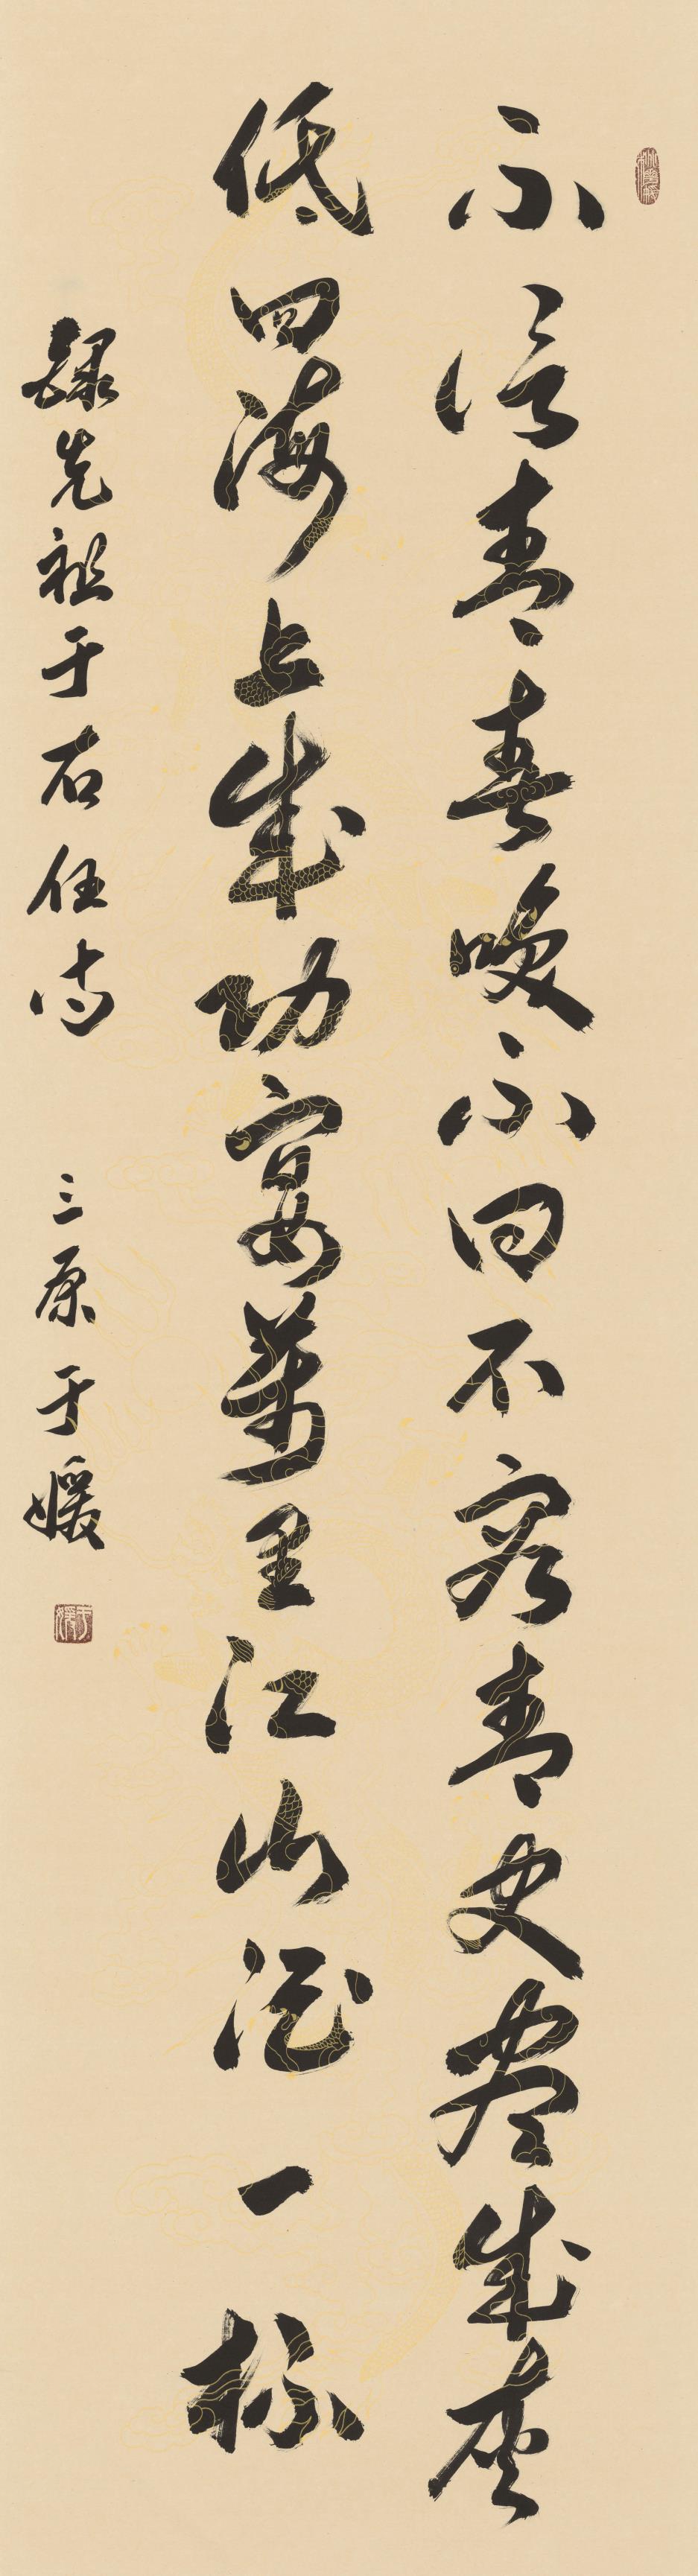 不信青春喚不回不容青史盡成灰
低回海上成功宴萬里江山酒一杯
錄先祖于右任詩 三原于媛
于媛